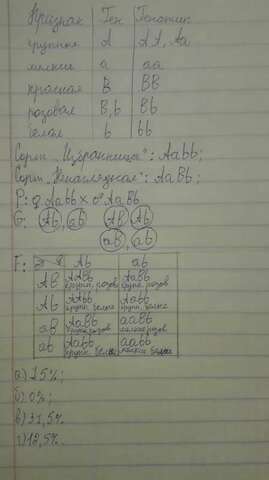 Признак Ген Генотип
крупные A AA, Aa
мелкие a aa
красная B BB
розовая B,b Bb
белая b bb
Сорт "Избранница": Aabb;
Сорт "Ненаглядная": AaBb;
P: ♀ Aabb × ♂ AaBb
G: Ab, ab AB Ab
aB, ab
F: Ab ab
AB AABb AaBb
крупн. розов крупн. розов
Ab AAbb Aabb
крупн. белые крупн. белые
aB AaBb aaBb
розов мелкие розов
ab Aabb aabb
крупн. белые мелкие белые
а) 25%;
б) 0%;
в) 37,5%
г) 12,5%